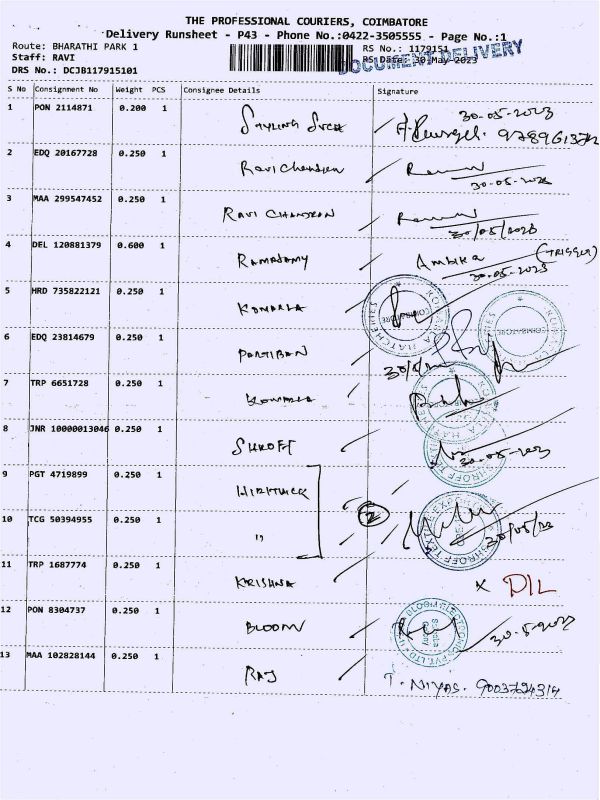 THE PROFESSIONAL COURIERS, COIMBATORE
Delivery Runsheet - P43 - Phone No.:0422-3505555 - Page No.:1
Route: BHARATHI PARK 1 RS No.: 1179151
Staff: RAVI RS Date: 30-May-2023
DRS No.: DCJB117915101
DOCUMENT DELIVERY
S No Consignment No Weight PCS Consignee Details Signature
1 PON 2114871 0.200 1 30-05-2023
2 EDQ 20167728 0.250 1 Ravi Chandren 30-05-2023
3 MAA 299547452 0.250 1 RAVI CHANDRAN 30/05/2023
4 DEL 120881379 0.600 1 RAMASAMY Ambika (TRIGGER)
30-05-2023
5 HRD 735822121 0.250 1 KOMARLA KOMARLA HATCHERIES COIMBATORE
6 EDQ 23814679 0.250 1 PARTIBAN
7 TRP 6651728 0.250 1 KOMARLA
8 JNR 10000013046 0.250 1 SHROFF 30-05-2023
9 PGT 4719899 0.250 1 SHROFF
10 TCG 50394955 0.250 1 " 2
11 TRP 1687774 0.250 1 KRISHNA X DIL
12 PON 8304737 0.250 1 BLOOM 30-5-2023
13 MAA 102828144 0.250 1 RAJ T. NIYAS. 9003724314